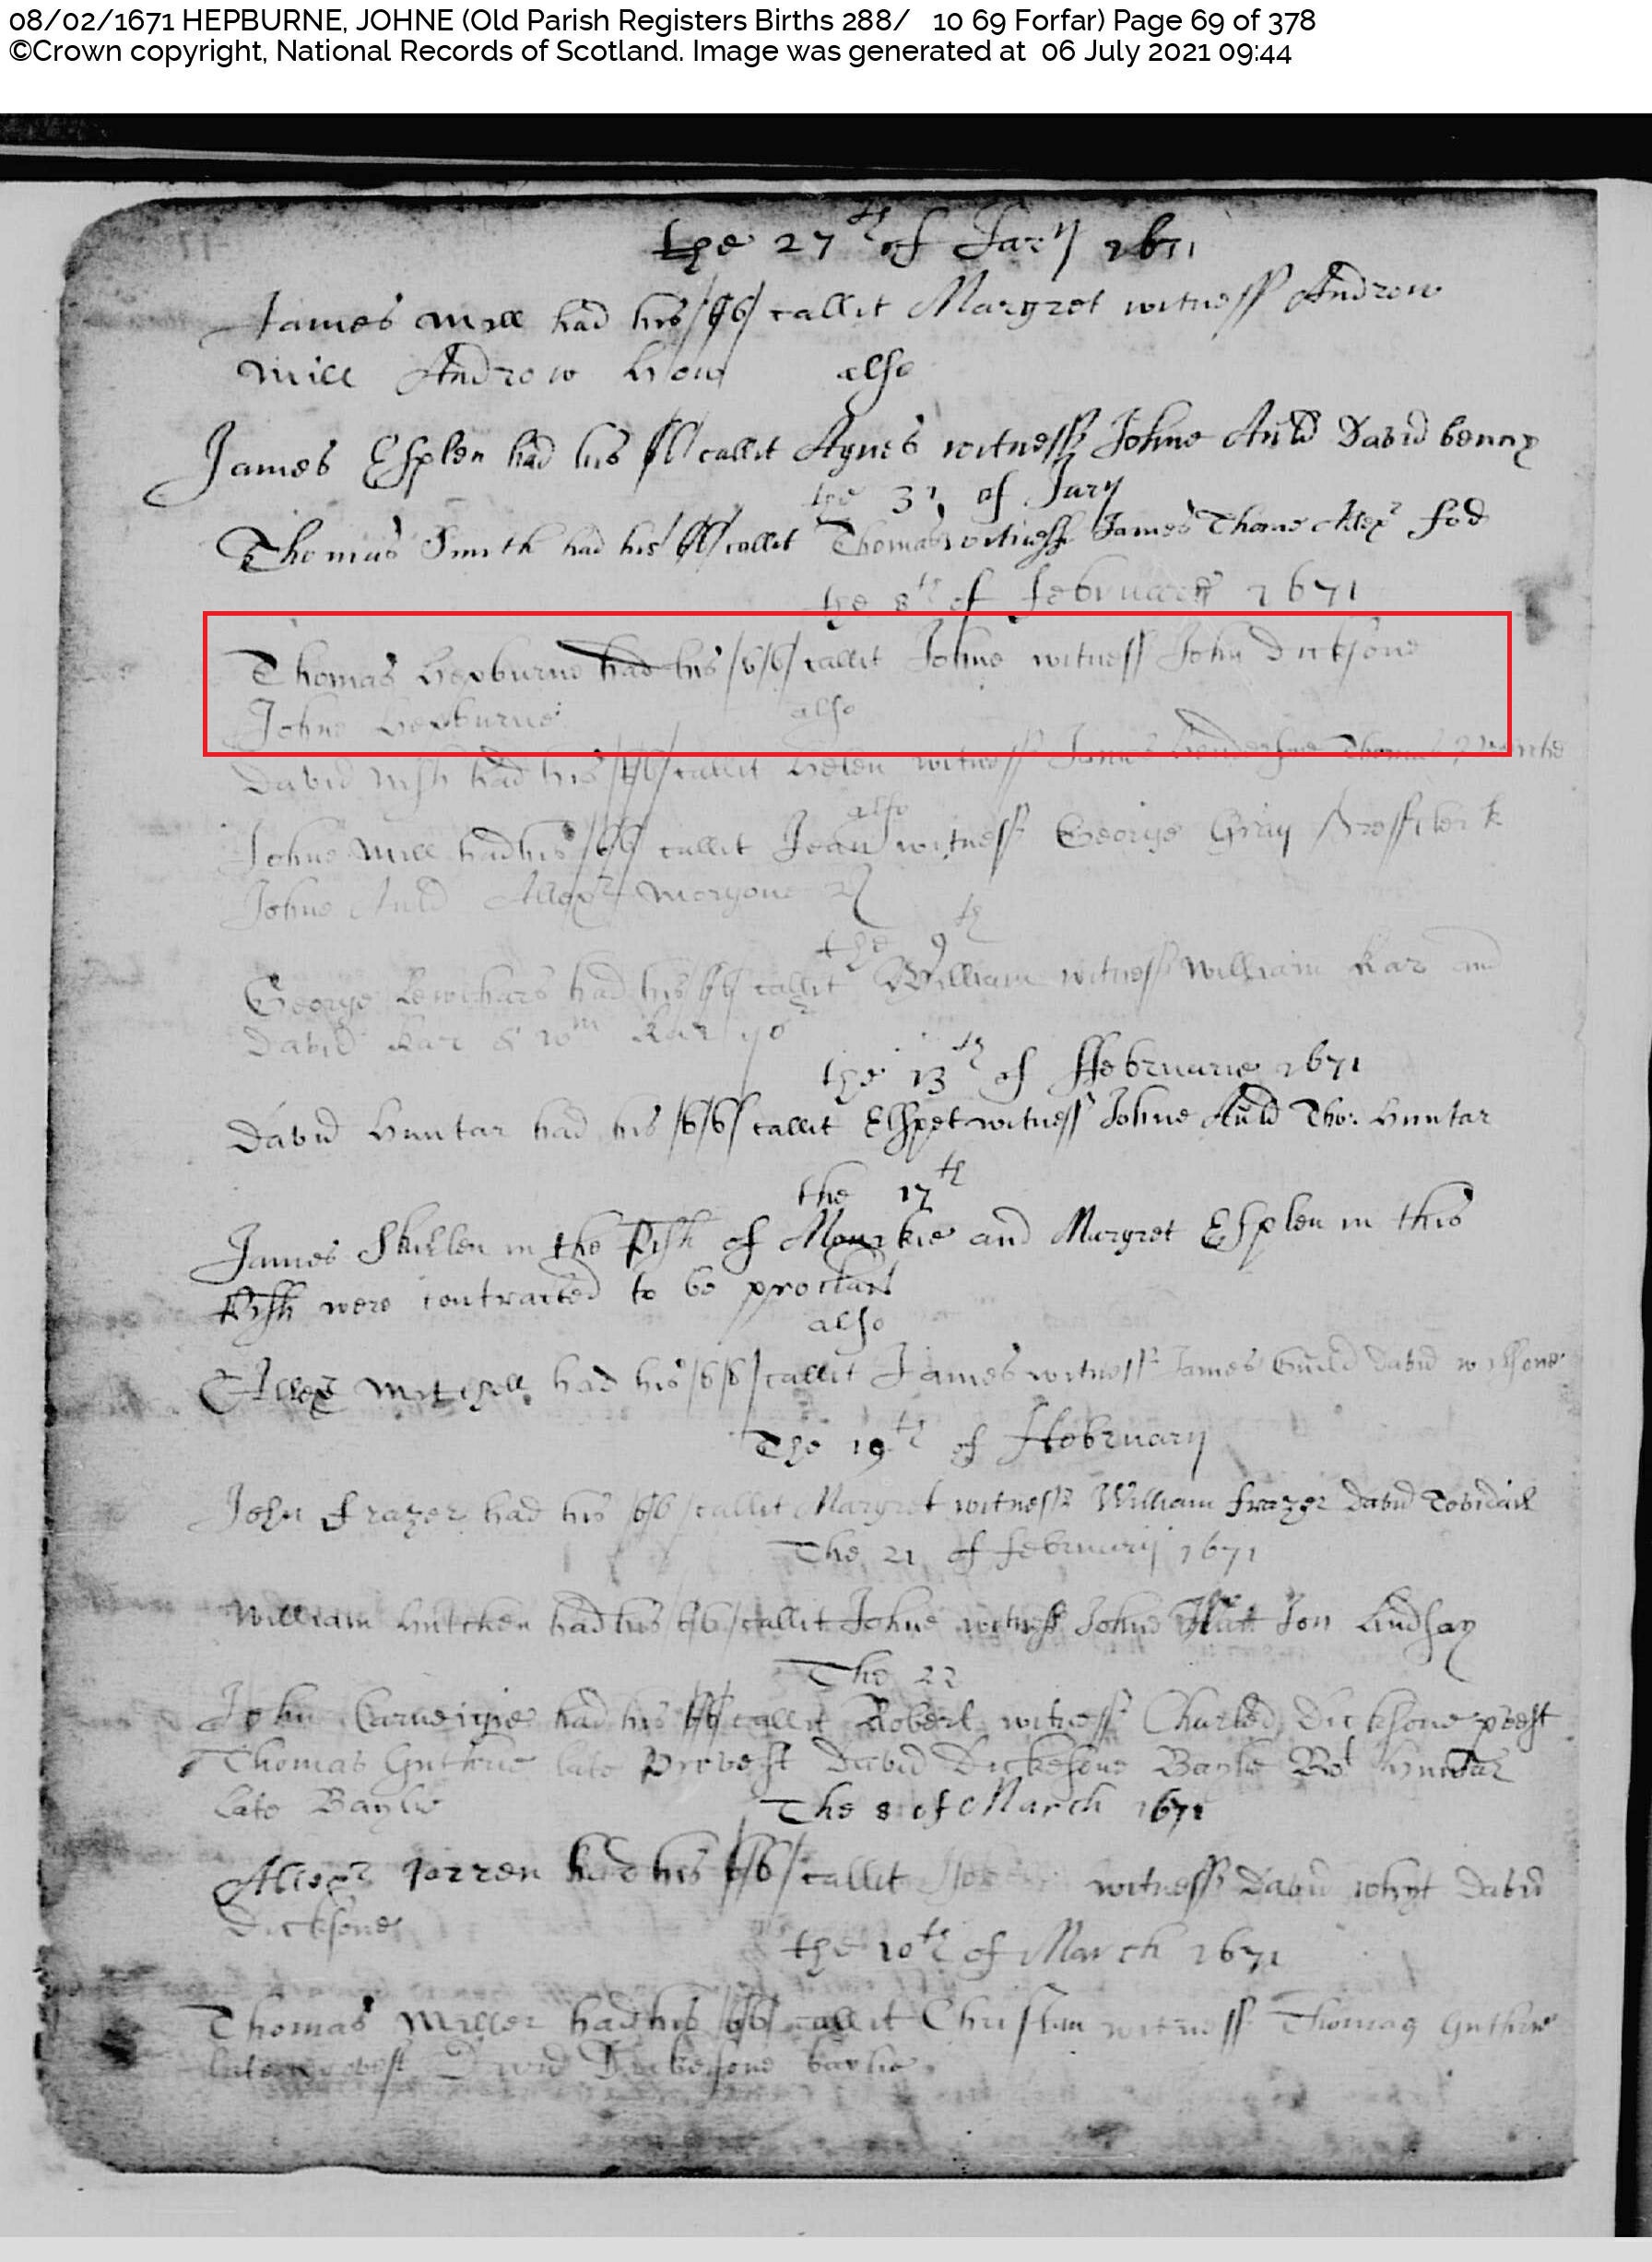 08/02/1671 HEPBURNE, JOHNE (Old Parish Registers Births 288/ 10 69 Forfar) Page 69 of 378
©Crown copyright, National Records of Scotland. Image was generated at 06 July 2021 09:44
the 27th of Jary 1671
James Mill had his /b/b/ callit Margret witness Androw
Mill Androw How also
James Esplen had his /b/ callit Agnes witness Johne Auld David
the 31 of Jary
Thomas Smith had his /b/b/ callit Thomas witness James Thome Alexr fod
the 8th of februarij 1671
Thomas Hepburne had his /b/b/ callit Johne witness John Dicksone
Johne Hepburne
also
David Nish had his /b/b/ callit Helen witness James Hendersone Thomas
also
Johne Mill had his /b/b/ callit Jean witness George Gray
Johne Auld Allexr
the 9th
George had his /b/b/ callit William witness William Kar and
David Kar & Wm Kar yor
the 13th of ffebruarie 1671
David Huntar had his /b/b/ callit Elspet witness Johne Auld Tho: Huntar
the 17th
James in the Pish of and Margret Esplen in this
Pish were contracted to be
also
Allexr Mitchell had his /b/b/ callit James witness James Guild David wilsone
The 19th of ffebruary
John frazer had his /b/b/ callit Margret witness William frazer David
The 21 of februarij 1671
William had his /b/b/ callit Johne witness Johne Jon Lindsay
The 22
John Carneigie had his /b/b/ callit Robert witness Charles Dicksone
Thomas Guthrie late Provest David Dickesone Baylie Rot Huntar
late Baylie
The 8 of March 1671
Allexr had his /b/b/ callit witness David whyt David
Dicksone
the 10th of March 1671
Thomas Miller had his /b/b/ callit Christan witness Thomas Guthrie
late provest David Dickesone baylie